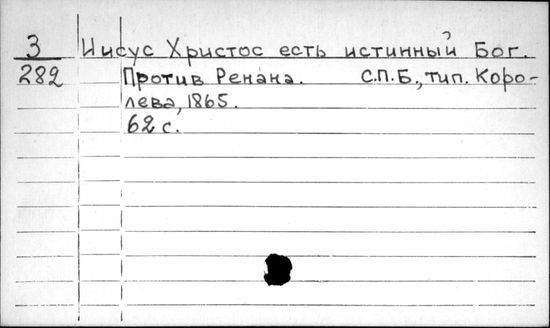 3 Иисус Христос есть истинный Бог.
282 Против Ренана. С.П.Б., тип. Коро-
лева, 1865.
62 с.